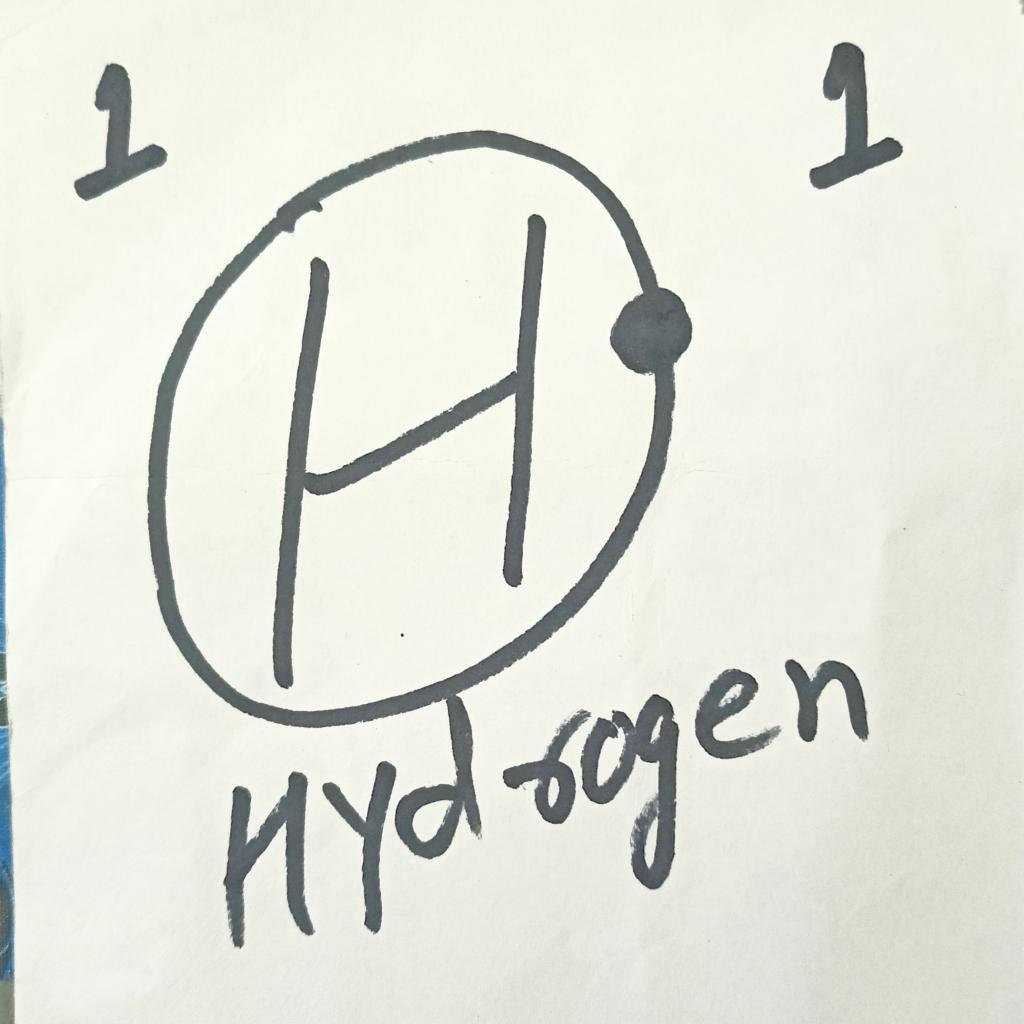 1 1
H
HYdrogen